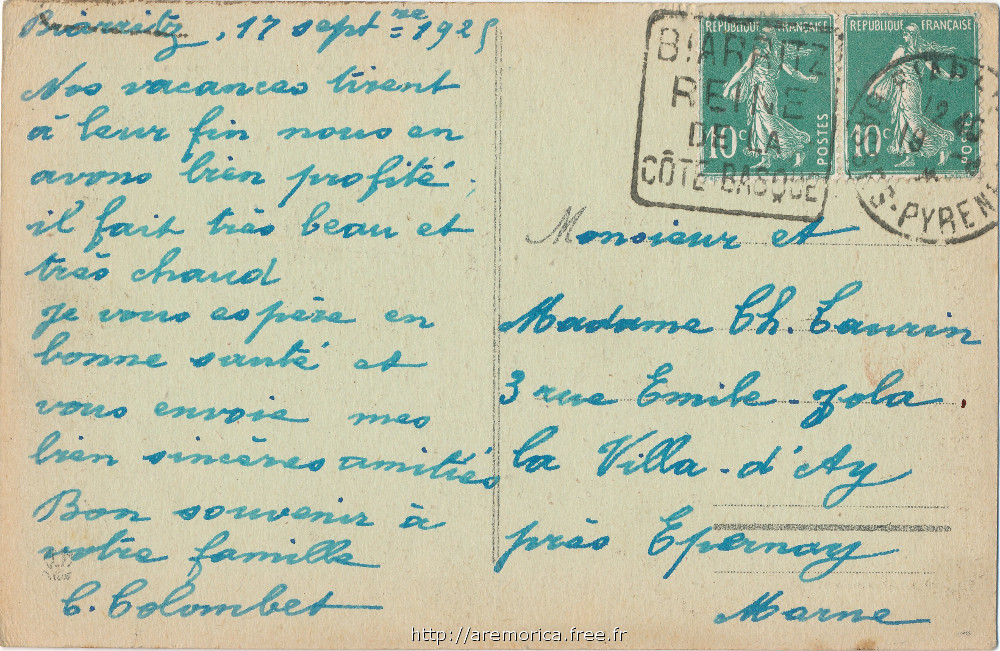 Biarritz, 17 septre = 1925
Nos vacances tirent
à leur fin nous en
avons bien profité;
il fait très beau et
très chaud
je vous espère en
bonne santé et
vous envoie mes
bien sincères amitiés
Bon souvenir à
votre famille
C. Colombet
BIARRITZ
REINE
DE LA
CÔTE BASQUE
REPUBLIQUE FRANÇAISE
10c
POSTES
REPUBLIQUE FRANÇAISE
10c
POSTES
S.-PYREN
Monsieur et
Madame Ch. Taurin
3 rue Emile-Zola
la Villa-d'Ay
près Epernay
Marne
http://aremorica.free.fr